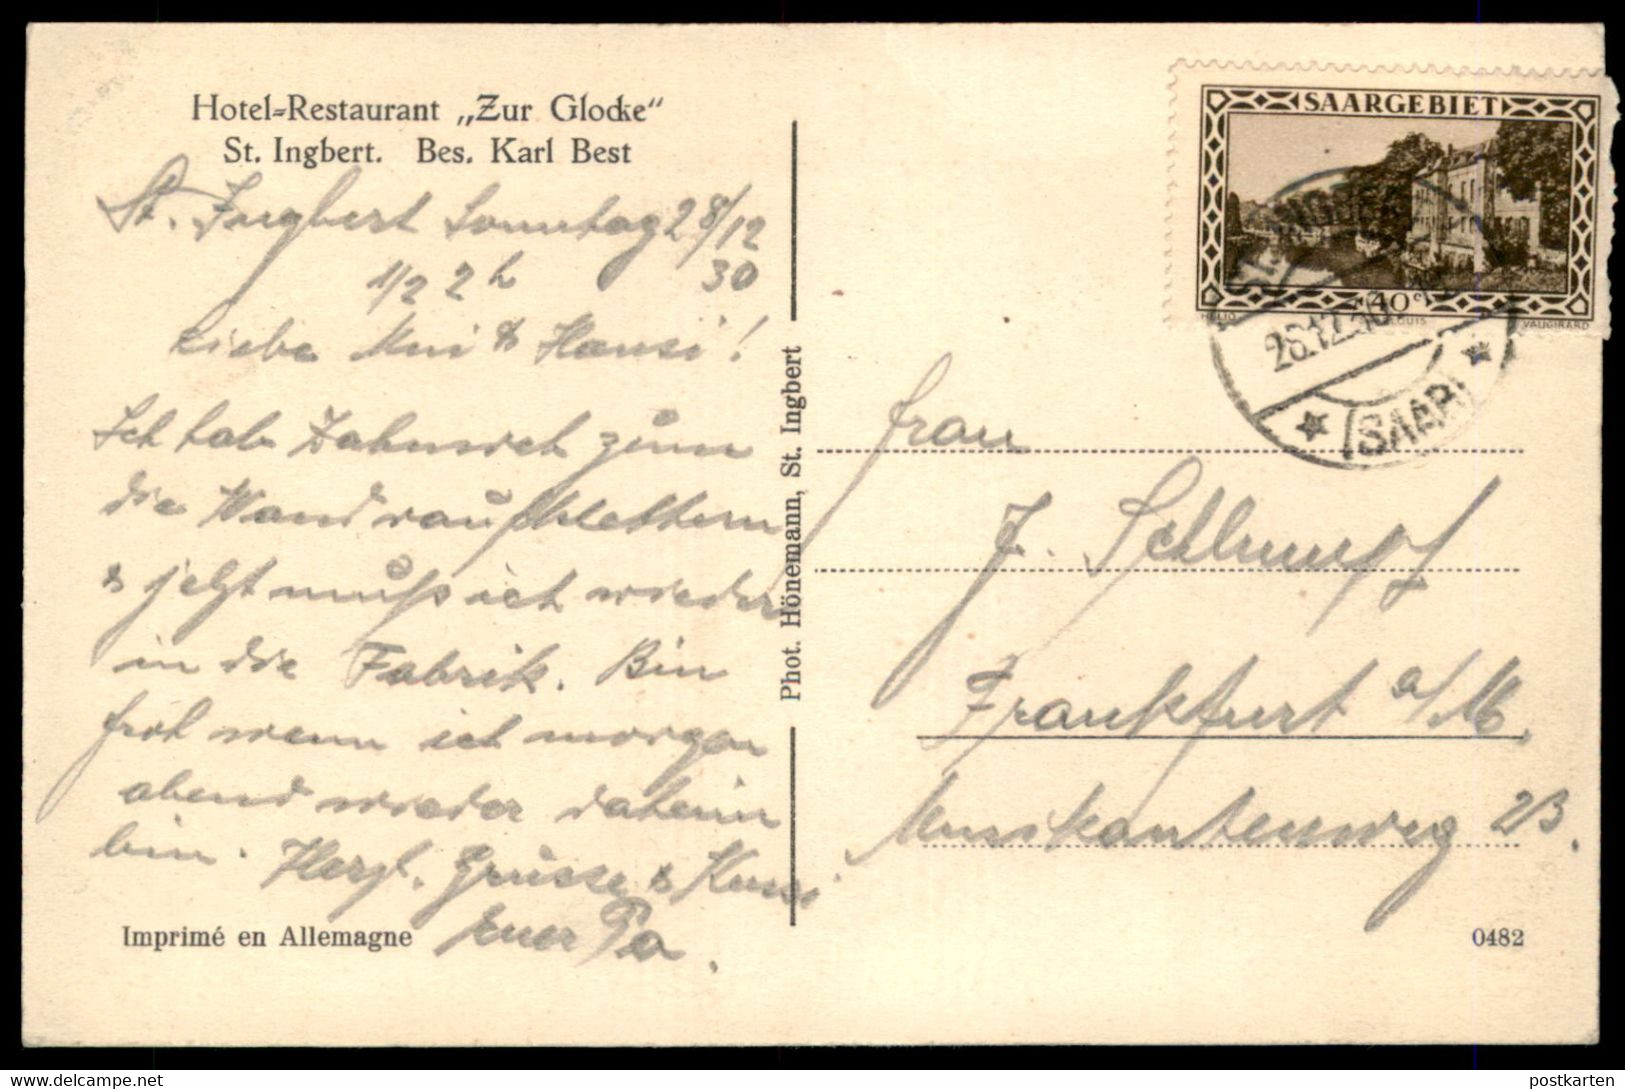 Hotel-Restaurant „Zur Glocke“
St. Ingbert. Bes. Karl Best
St. Ingbert Sonntag 28/12
1/2 2 h 30
Liebe Mui & Hansi!
Ich hab Zahnweh zum
die Wand raufklettern
& jetzt muß ich wieder
in die Fabrik. Bin
froh wenn ich morgen
abend wieder daheim
bin. Herzl. Grüsse & Kuss
Euer Pa.
Imprimé en Allemagne
Phot. Hönemann, St. Ingbert
SAARGEBIET
40 c
HELIO
VAUGIRARD
ST. INGBERT
28.12.30
(SAAR)
Frau
J. Schlumpf
Frankfurt a/M.
Musikantenweg 23.
0482
postkarten